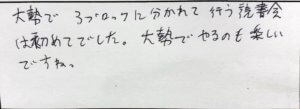 大勢で 3ブロックに分かれて 行う読書会
は初めてでした。大勢でやるのも楽しい
ですね。